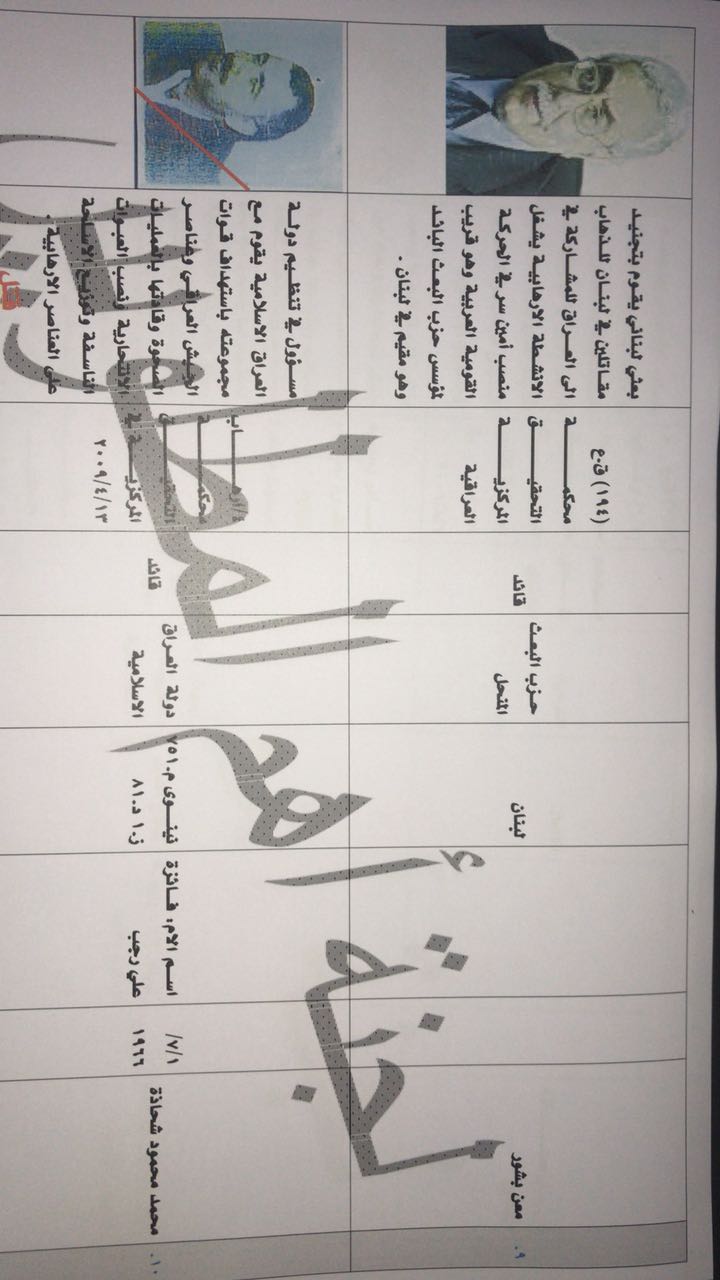 .٩
معن بشور
لبنان
حزب البعث
المنحل
قائد
(١٩٤) ق.ع
محكمة
التحقيق
المركزية
العراقية
بعثي لبناني يقوم بتجنيد
مقاتلين في لبنان للذهاب
الى العراق للمشاركة في
الانشطة الارهابية يشغل
منصب أمين سر في الحركة
القومية العربية وهو قريب
لمؤسس حزب البعث البائد
وهو مقيم في لبنان .
.١٠
محمد محمود شحاذة
/٧/١
١٩٦٦
اسم الام: فائزة
علي رجب
نينوى م.٧٥١
ز.١ د.٨١
دولة العراق
الاسلامية
قائد
٤/ارهاب
محكمة
التحقيق
المركزية في
٢٠٠٩/٤/١٣
مسؤول في تنظيم دولة
العراق الاسلامية يقوم مع
مجموعته باستهداف قوات
الجيش العراقي وعناصر
الصحوة وقادتها بالعمليات
الانتحارية ونصب العبوات
الناسفة وتوزيع الاسلحة
على العناصر الارهابية .
قتل
لجنة أهم المطلوبين